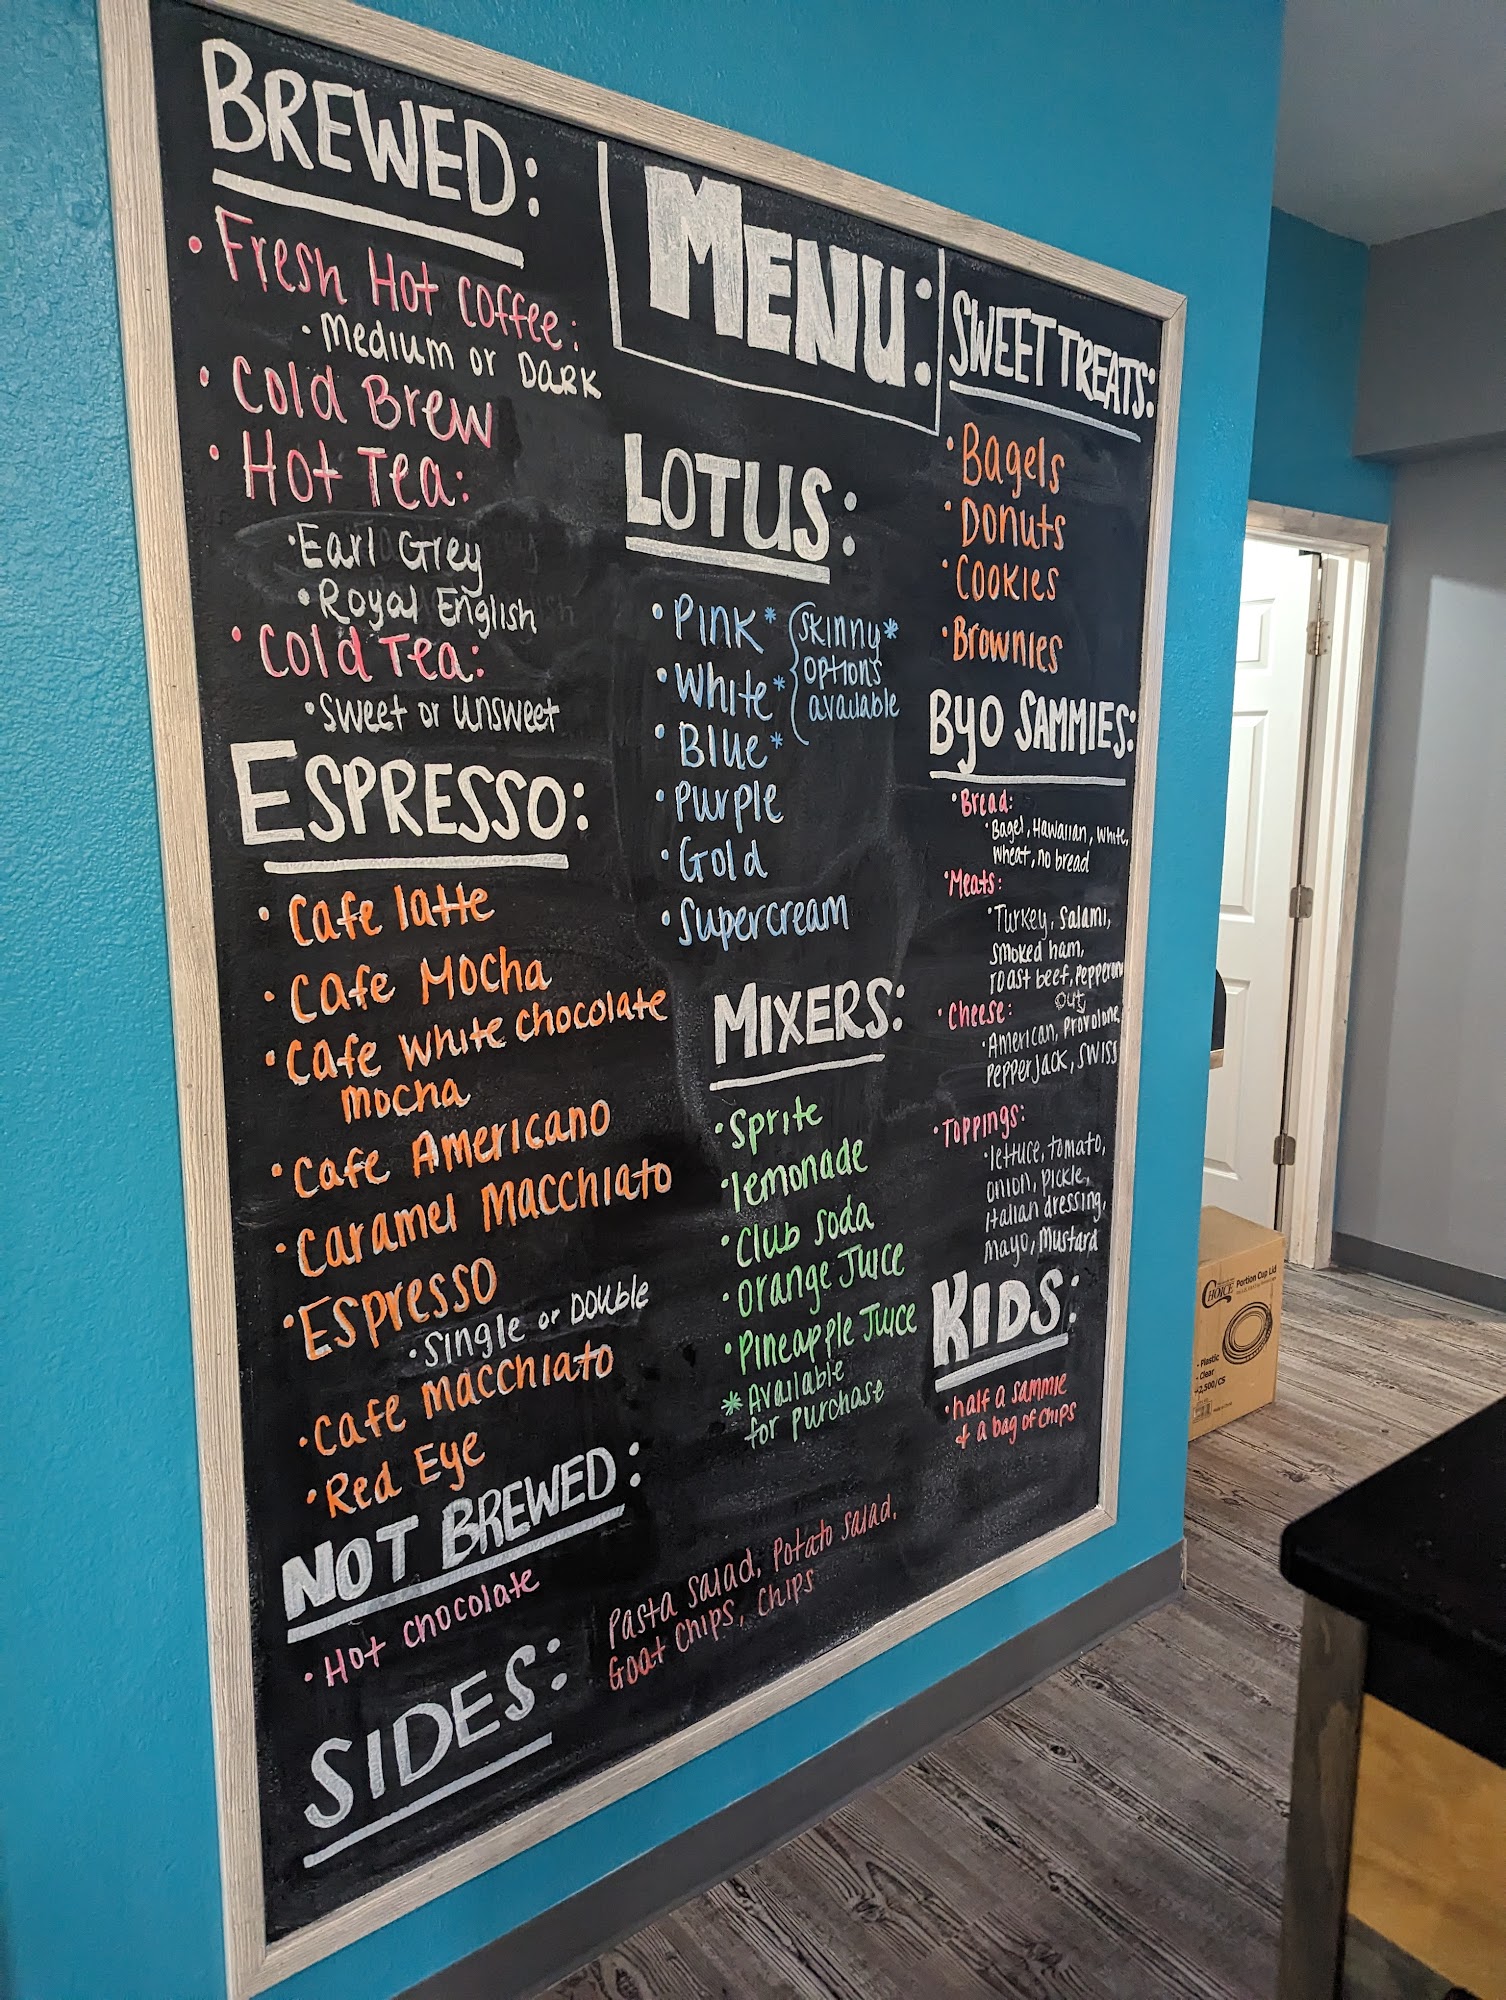 BREWED:
• Fresh Hot Coffee:
• Medium or Dark
• Cold Brew
• Hot Tea:
• Earl Grey
• Royal English
• Cold Tea:
• Sweet or Unsweet
ESPRESSO:
• Cafe latte
• Cafe Mocha
• Cafe White Chocolate
Mocha
• Cafe Americano
• Caramel Macchiato
• Espresso
• Single or Double
• Cafe Macchiato
• Red Eye
NOT BREWED:
• Hot Chocolate
SIDES:
Pasta Salad, Potato Salad,
Goat Chips, Chips
MENU:
LOTUS:
• Pink *
• White *
• Blue *
skinny *
options
available
• Purple
• Gold
• Supercream
MIXERS:
• Sprite
• lemonade
• Club Soda
• Orange Juice
• Pineapple Juice
* Available
for purchase
SWEET TREATS:
• Bagels
• Donuts
• Cookies
• Brownies
BYO SAMMIES:
• Bread:
• Bagel, Hawaiian, White,
Wheat, no bread
• Meats:
• Turkey, Salami,
smoked ham,
roast beef, pepperoni
out
• Cheese:
• American, Provolone,
Pepperjack, Swiss
• Toppings:
• lettuce, tomato,
onion, pickle,
Italian dressing,
mayo, mustard
KIDS:
• half a sammie
& a bag of chips
CHOICE
Portion Cup Lid
- Plastic
- Clear
- 2,500/CS